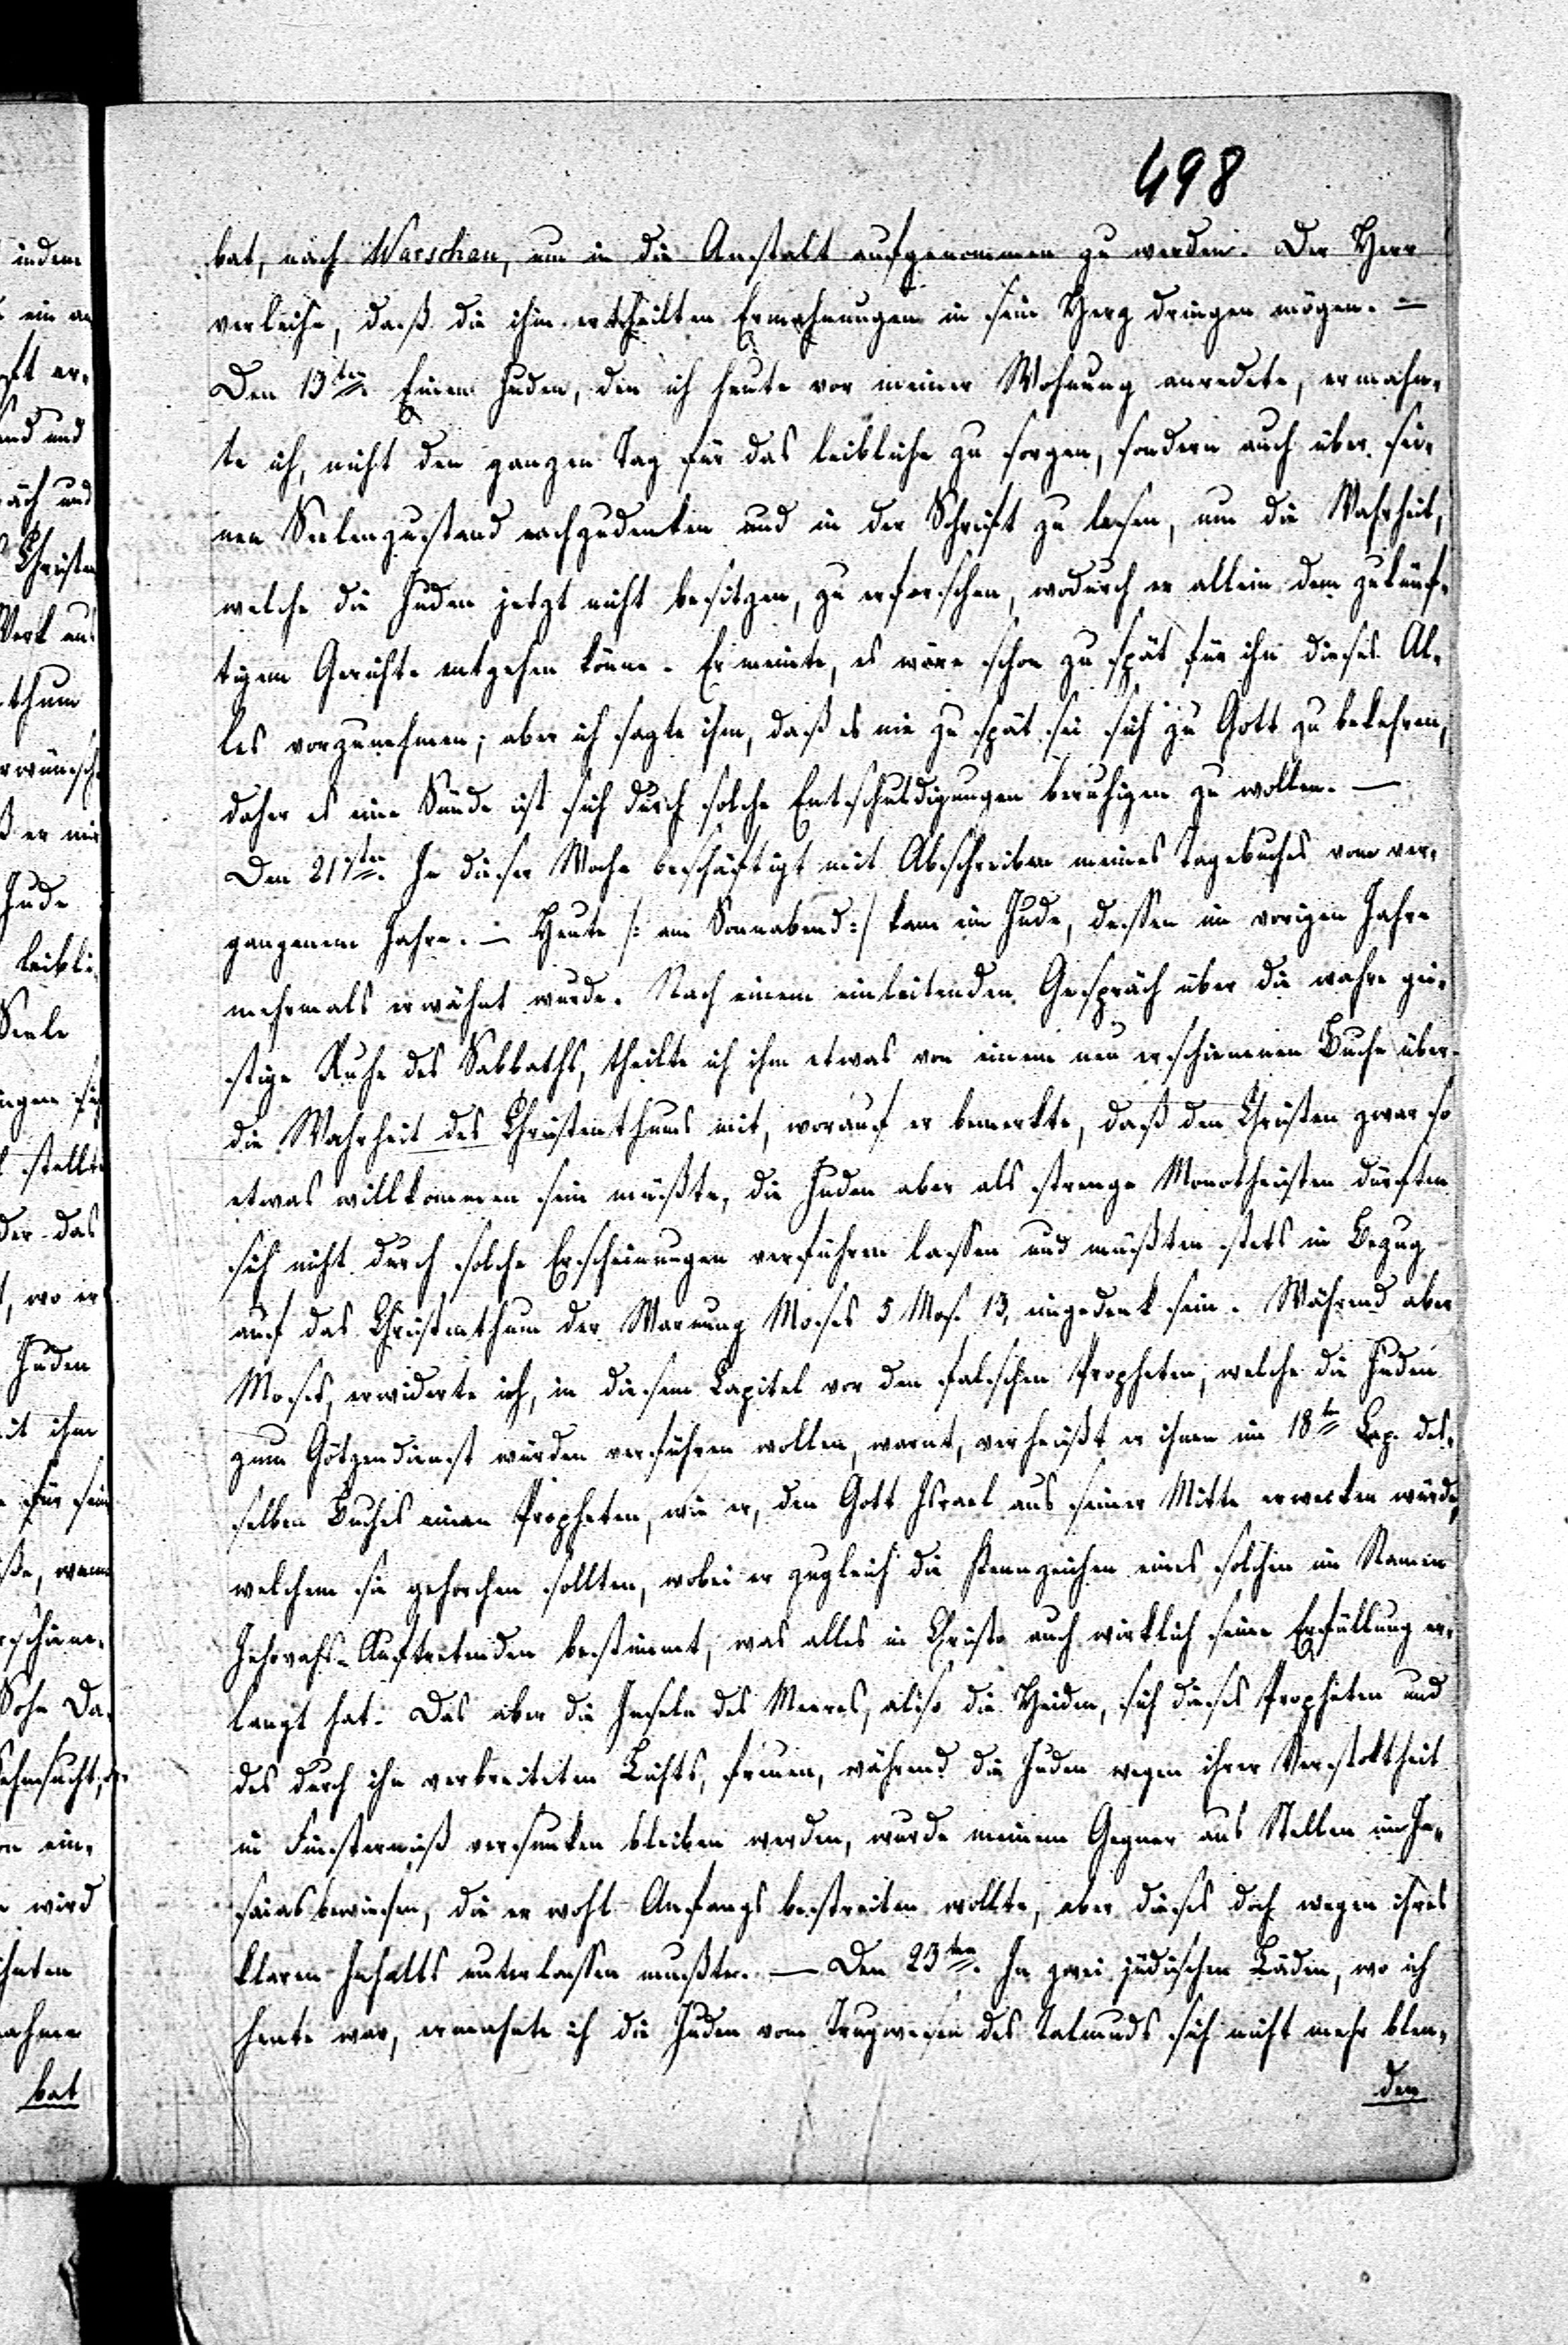 498
indem
bat, nach Warschau, um in die Anstalt aufgenommen zu werden. Der Herr
verleihe, daß die ihm ertheilten Ermahnungen in sein Herz dringen mögen. —
Den 13ten. Einen Juden, den ich heute vor meiner Wohnung anredete, ermahn-
te ich, nicht den ganzen Tag für das leibliche zu sorgen, sondern auch über sei-
nen Seelenzustand nachzudenken und in der Schrift zu lesen, um die Wahrheit,
welche die Juden jetzt nicht besitzen, zu erforschen, wodurch er allein dem zukünf-
tigen Gerichte entgehen könne. Er meinte, es wäre schon zu spät für ihn dieses Al-
les vorzunehmen; aber ich sagte ihm, daß es nie zu spät sei sich zu Gott zu bekehren,
daher es eine Sünde ist sich durch solche Entschuldigungen beruhigen zu wollen. —
Den 21sten. In dieser Woche beschäftigt mit Abschreiben meines Tagebuches vom ver-
gangenem Jahre. — Heute /: am Sonnabend :/ kam ein Jude, dessen im vorigen Jahre
mehrmals erwähnt wurde. Nach einem einleitenden Gespräch über die wahre gei-
stige Ruhe des Sabbaths, theilte ich ihm etwas von einem neu erschienenen Buche über
die Wahrheit des Christenthums mit, worauf er bemerkte, daß den Christen zwar so
etwas willkommen sein müßte, die Juden aber als strenge Monotheisten dürften
sich nicht durch solche Erscheinungen verführen lassen und müßten stets in Bezug
auf das Christenthum der Warnung Moses 5 Mos. 13, eingedenk sein. Während aber
Moses, erwiderte ich, in diesem Capitel vor den falschen Propheten, welche die Juden
zum Götzendienst würden verführen wollen, warnt, verheißt er ihnen im 18ten Cap. des-
selben Buches einen Propheten, wie er, den Gott Israel aus seiner Mitte erwecken würde,
welchem sie gehorchen sollten, wobei er zugleich die Kennzeichen eines solchen im Namen
Jehovahs-Auftretenden bestimmt, was alles in Christo auch wirklich seine Erfüllung er-
langt hat. Das aber die Inseln des Meeres, also die Heiden, sich dieses Propheten und
des durch ihn verbreiteten Lichts, freuen, während die Juden wegen ihrer Verstoktheit
in Finsterniß versunken bleiben werden, wurde meinem Gegner aus Stellen im Je-
saias bewiesen, die er wohl Anfangs bestreiten wollte, aber dieses doch wegen ihres
klaren Inhalts unterlassen mußte. — Den 23ten. In zwei jüdischen Läden, wo ich
heute war, ermahnte ich die Juden vom Trugwesen des Talmuds sich nicht mehr blen-
den
ein an
und
Christen
Werk aus
thum
er mir
Jude
leibli-
Seele
stellte
der das
wo er
Juden
mit ihm
für sein
wenn
Sohn Da-
Sehnsucht,
ein-
wird
bat